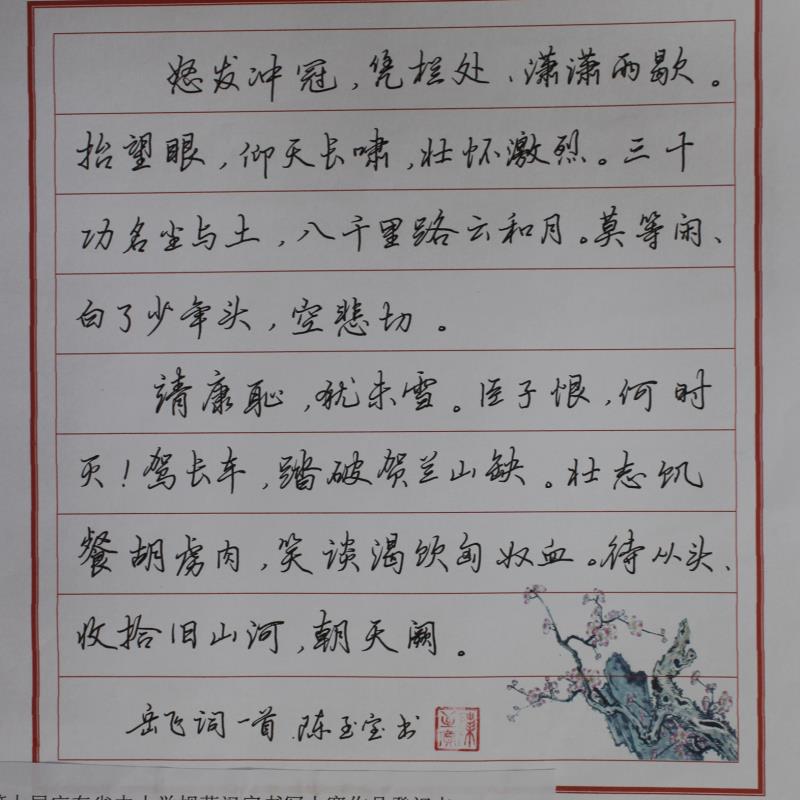 怒发冲冠，凭栏处、潇潇雨歇。
抬望眼，仰天长啸，壮怀激烈。三十
功名尘与土，八千里路云和月。莫等闲、
白了少年头，空悲切。
靖康耻，犹未雪。臣子恨，何时
灭！驾长车，踏破贺兰山缺。壮志饥
餐胡虏肉，笑谈渴饮匈奴血。待从头、
收拾旧山河，朝天阙。
岳飞词一首 陈玉宝书